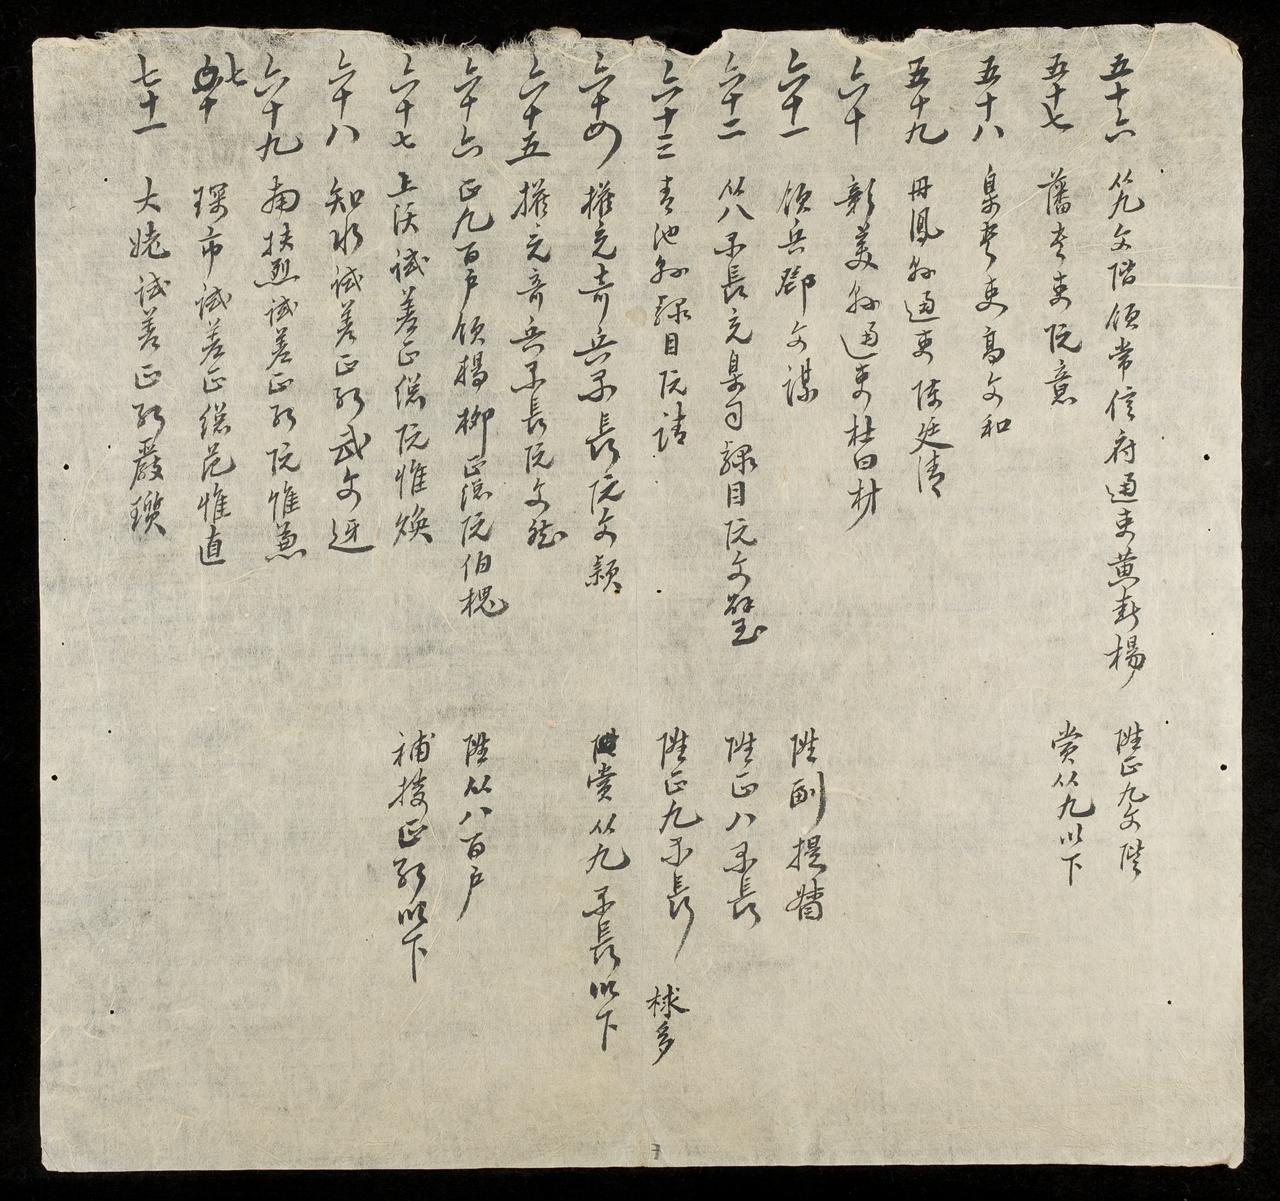 五十六 从九文階領常信府通吏黄春楊 陞正九文階
五十七 藩吏阮意 賞从九以下
五十八 臬吏高文和
五十九 丹鳳縣通吏陳廷清
六十 彰美縣通吏杜曰材
六十一 領兵鄧文謀 陞副提督
六十二 从八不長充臬司隸目阮文璧 陞正八不長
六十三 青池縣隸目阮請 陞正九不長 棣多
六十四 權充奇兵不長阮文穎 賞从九不長以下
六十五 權充奇兵不長阮文
六十六 正九百戸領楊柳正總阮伯槐 陞从八百戸
六十七 上沃試差正總阮惟煥 補授正総以下
六十八 知水試差正総武文迓
六十九 南扶烈試差正総阮惟
七十 琛市試差正總范惟直
七十一 大姥試差正総嚴璸
7